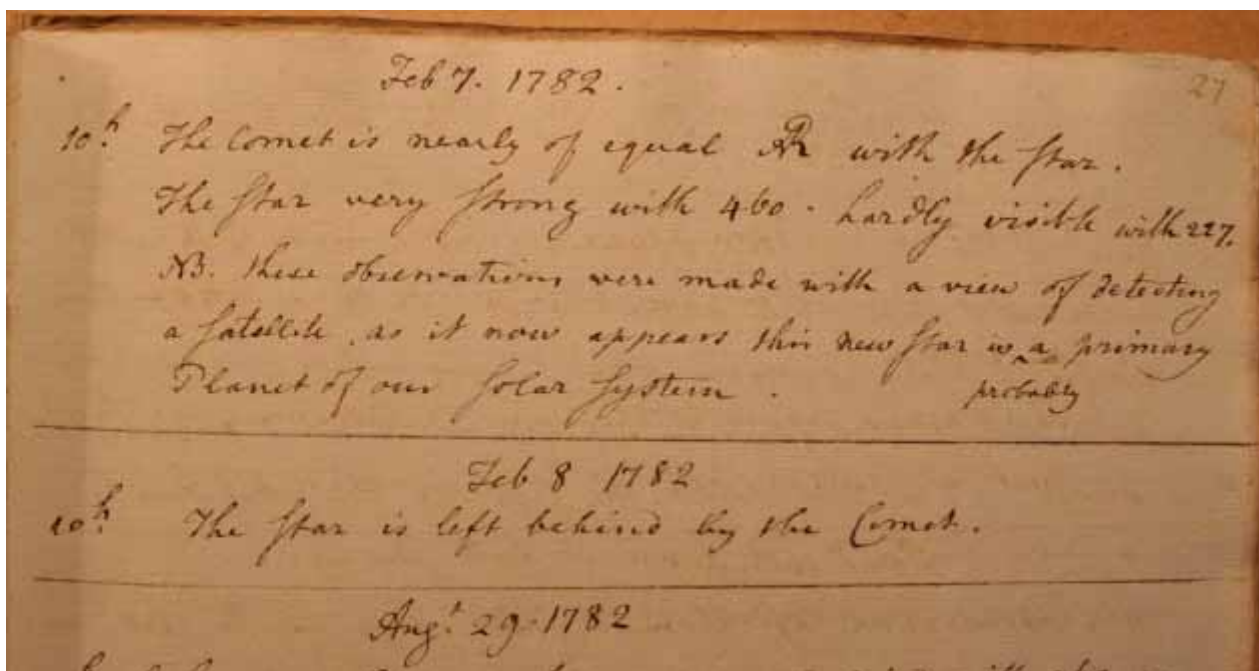 27
Feb 7. 1782.
10h. The Comet is nearly of equal AR with the Star.
The Star very strong with 460. hardly visible with 227.
NB. these observations were made with a view of detecting
a Satellite, as it now appears this new star is a primary
probably
Planet of our Solar System.
Feb 8 1782
10h. The Star is left behind by the Comet.
Augt. 29. 1782